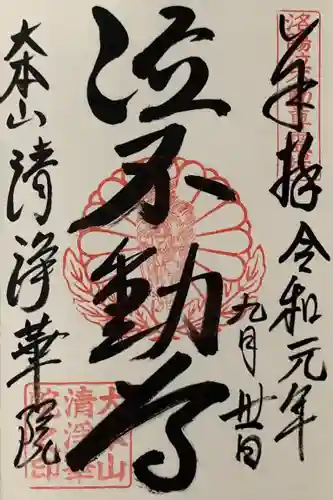 奉拝
令和元年
九月廿日
泣不動尊
大本山清浄華院
大本山
清浄華
院之印